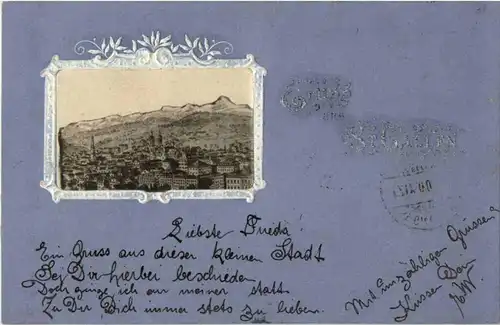 Gruss
St. Gallen
Liebste Frieda!
Ein Gruss aus dieser kleinen Stadt
Sei Dir hierbei beschieden
Doch ginge ich an meiner statt.
Zu Dir, Dich immer stets zu lieben.
Mit unzähligen Grüssen &
Küssen Dein